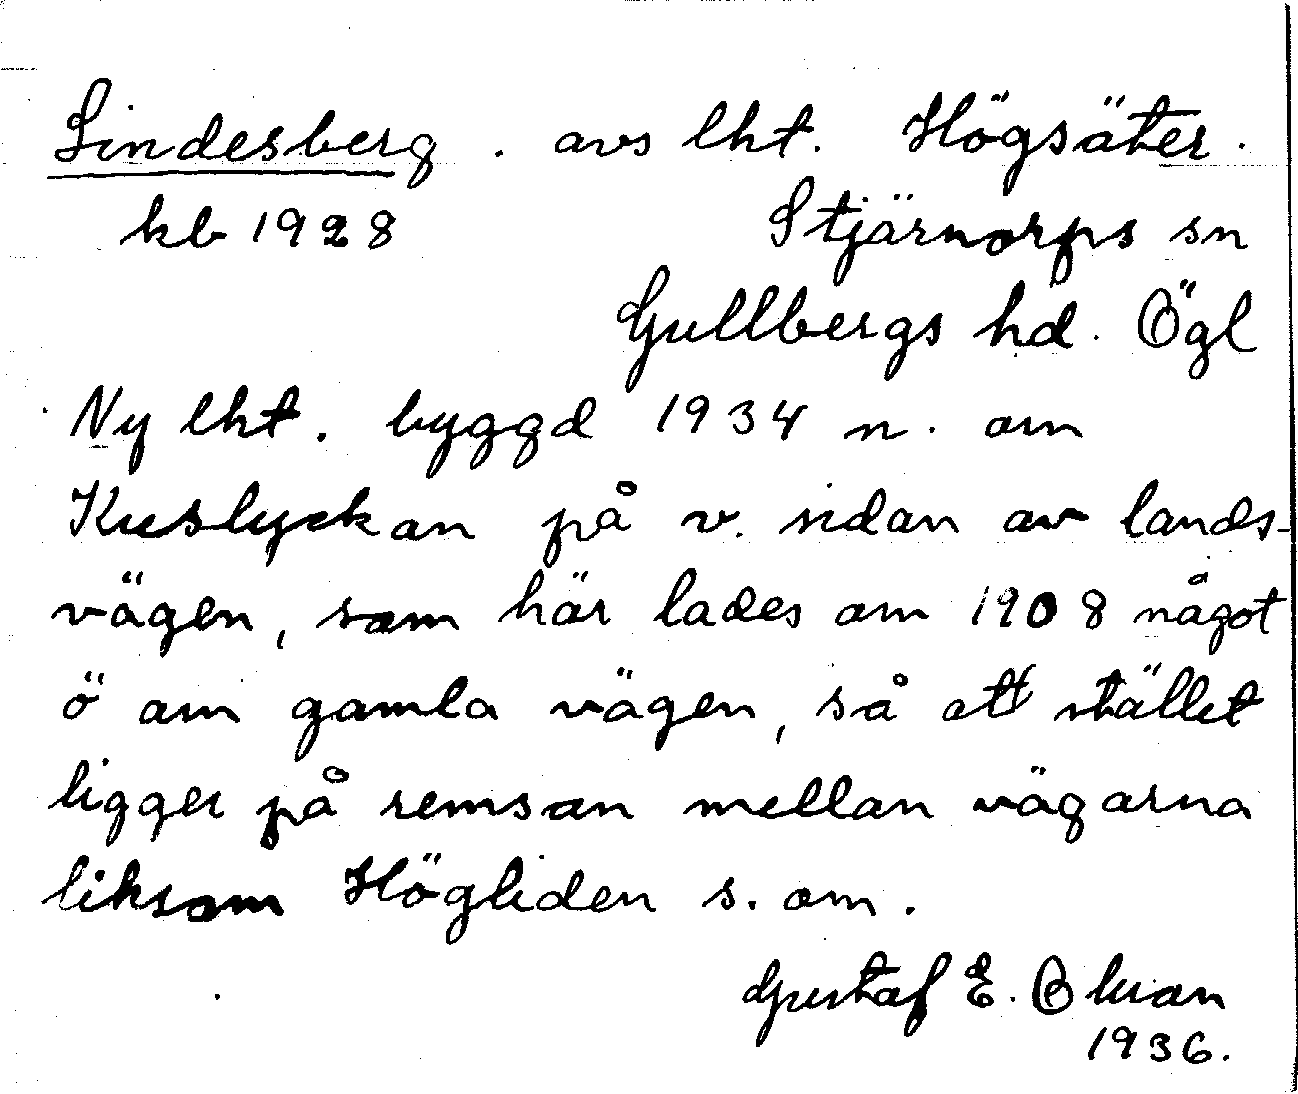 Lindesberg . avs lht. Högsäter.
kb 1928 Stjärnorps sn
Gullbergs hd. Ögl
Ny lht. byggd 1934 n. om
Kuslyckan på v. sidan av lands-
vägen, som här lades om 1908 något
ö om gamla vägen, så att stället
ligger på remsan mellan vägarna
liksom Högliden s. om.
Gustaf E.
1936.